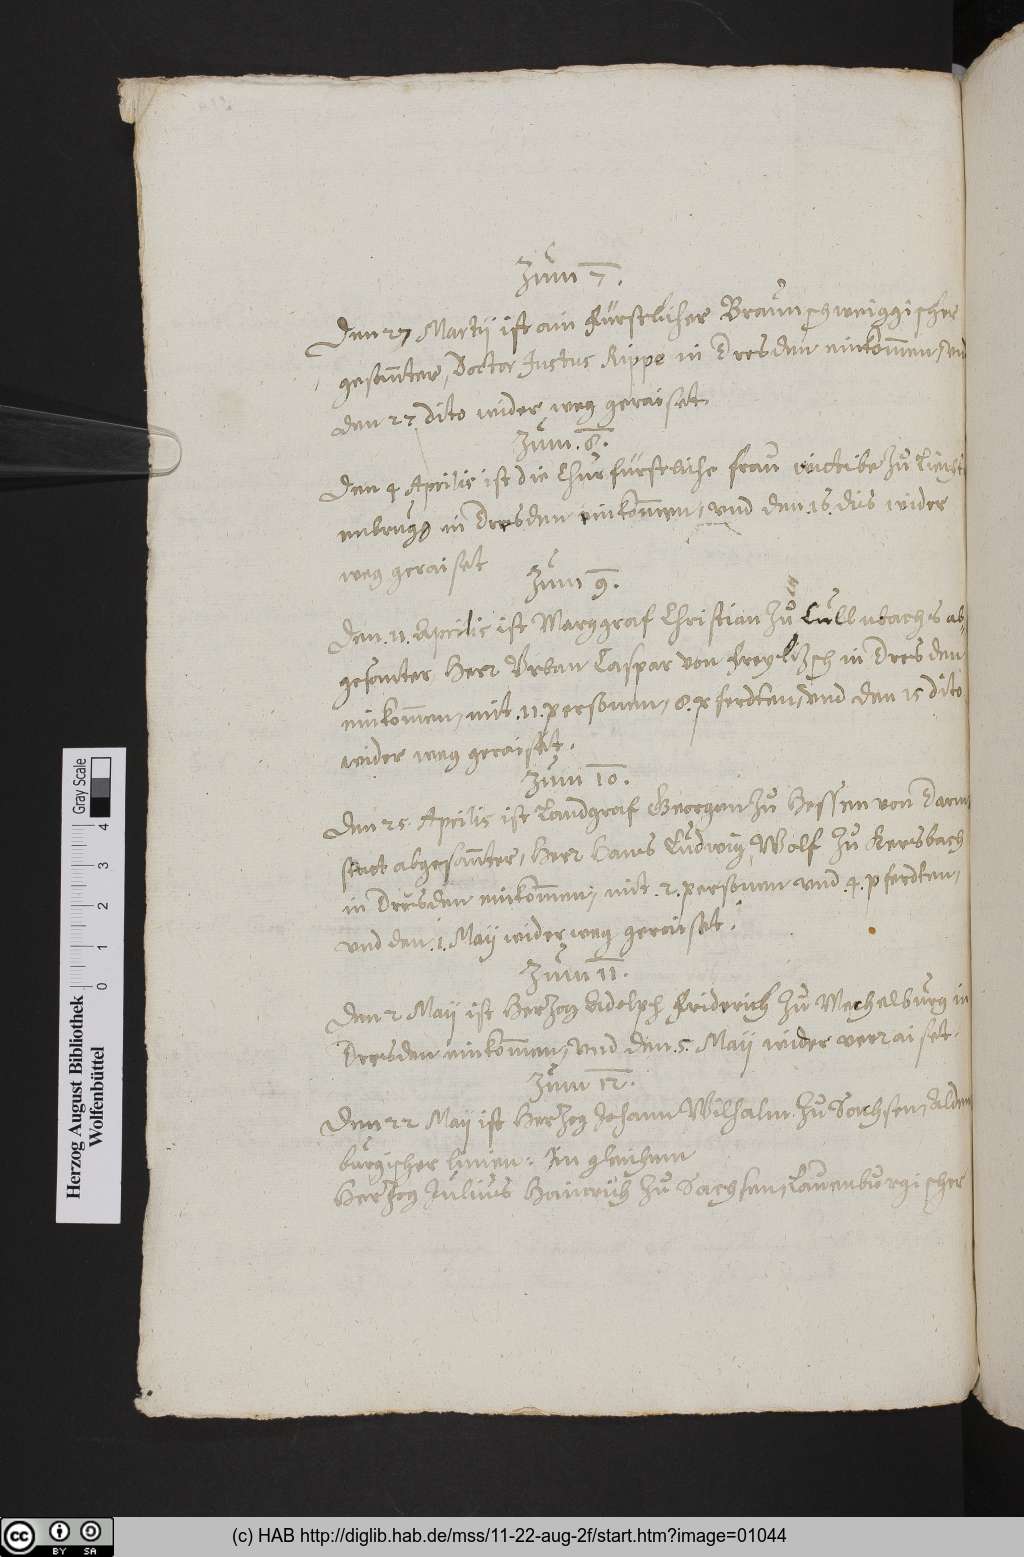 Zum 7.
Den 27 Martij ist ain Fürstlicher Braunschweiggischer
gesannter, Doctor Justus Rippe in Dresden einkommen, vnd
den 27 dito wider weg geraiset.
Zum .8.
Den 4 Aprilis ist die Churfürstliche frau wittibe zu
in Dresden einkommen, vnd den .16. dis wider
weg geraiset
Zum 9.
Den .11. Aprilis ist Marggraf Christian zu Cullnbachs ab-
gesanter Herr Vrban Caspar von Freylizsch in Dresden
einkommen, mit .11. personen, 8. pferdten, vnd den 15 dito
wider weg geraiset.
Zum 10.
Den 25 Aprilis ist Landgraf Georgen zu Hessen von Darm
stat abgesannter, Herr Hans Ludwig Wolf zu Karsbach
in Dresden einkommen, mit .2. personen vnd .4. pferdten,
vnd den .1. Maij wider weg geraiset.
Zum 11.
Den 2 Maij ist Herzog Adolph Friderich zu Mechelburg in
Dresden einkommen, vnd den .5. Maij wider verraiset.
Zum 12.
Den 22 Maij ist Herzog Johann Wilhalm zu Sachsen, Alden
burgischer linien. In gleichem
Herzog Julius Hainrich zu Sachsen, Lauenburgischer
Herzog August Bibliothek
Wolfenbüttel
Gray Scale
0 1 2 3 4
cc BY SA
(c) HAB http://diglib.hab.de/mss/11-22-aug-2f/start.htm?image=01044